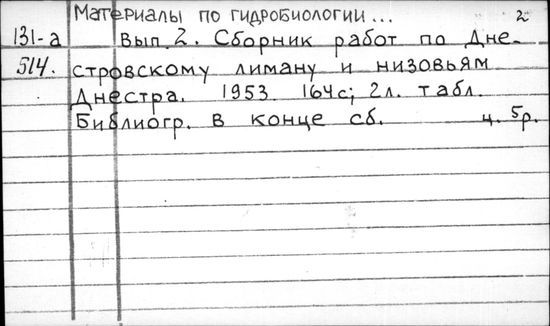 Материалы по гидробиологии... 2
131-а Вып. 2. Сборник работ по Дне-
514. стровскому лиману и низовьям
Днестра. 1953 164с; 2л. табл.
Библиогр. в конце сб. ц. 5р.